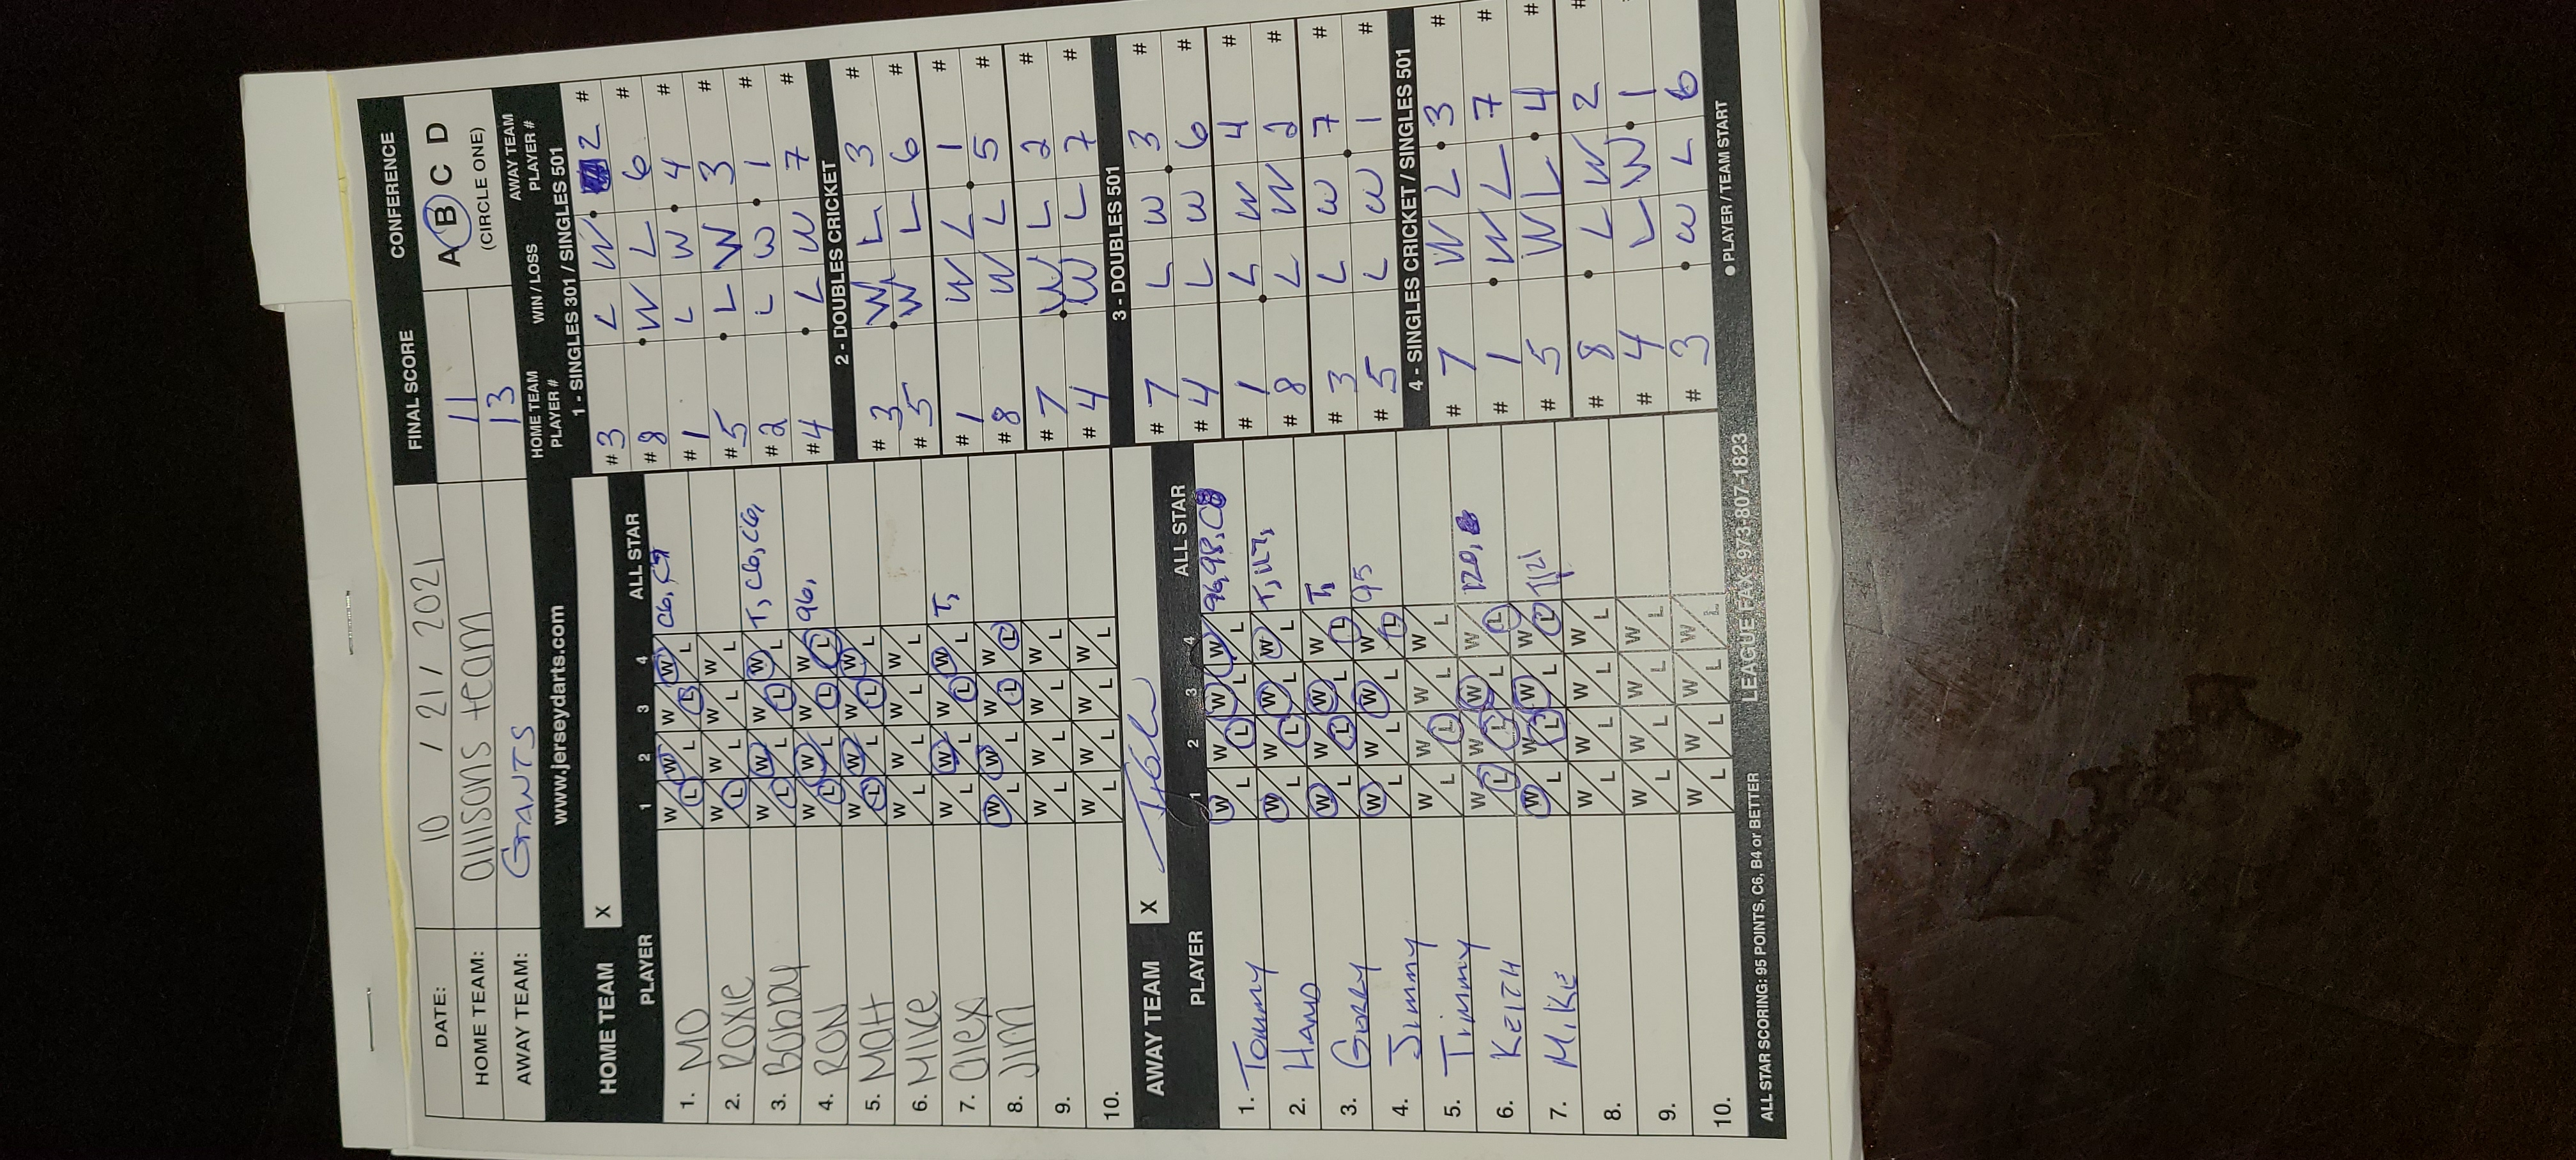 DATE: 10 / 21 / 2021 FINAL SCORE CONFERENCE
HOME TEAM: allisons team 11 A B C D
AWAY TEAM: GrANTS 13 (CIRCLE ONE)
www.jerseydarts.com
HOME TEAM X
PLAYER 1 2 3 4 ALL STAR
1. MO W L W L W L W L C6,
2. ROXIE W L W L W L W L
3. Bobby W L W L W L W L T, C6, C6,
4. RON W L W L W L W L 96,
5. Matt W L W L W L W L
6. Mike W L W L W L W L
7. alex W L W L W L W L T,
8. JIM W L W L W L W L
9. W L W L W L W L
10. W L W L W L W L
AWAY TEAM X
PLAYER 1 2 3 4 ALL STAR
1. Tommy W L W L W L W L 96, 98,
2. HANO W L W L W L W L T,
3. GORRY W L W L W L W L T,
4. Jimmy W L W L W L W L 95
5. Timmy W L W L W L W L
6. KEITH W L W L W L W L 120,
7. MIKE W L W L W L W L
8. W L W L W L W L
9. W L W L W L W L
10. W L W L W L W L
ALL STAR SCORING: 95 POINTS, C6, B4 or BETTER LEAGUE FAX: 973-807-1823
HOME TEAM PLAYER # WIN / LOSS AWAY TEAM PLAYER #
1 - SINGLES 301 / SINGLES 501
# 3 L W 2 #
# 8 W L 6 #
# 1 L W 4 #
# 5 L W 3 #
# 2 L W 1 #
# 4 L W 7 #
2 - DOUBLES CRICKET
# 3 W L 3 #
# 5 W L 6 #
# 1 W L 1 #
# 8 W L 5 #
# 7 W L 2 #
# 4 W L 7 #
3 - DOUBLES 501
# 7 L W 3 #
# 4 L W 6 #
# 1 L W 4 #
# 8 L W 2 #
# 3 L W 7 #
# 5 L W 1 #
4 - SINGLES CRICKET / SINGLES 501
# 7 W L 3 #
# 1 W L 7 #
# 5 W L 4 #
# 8 L W 2 #
# 4 L W 1
# 3 W L 6
● PLAYER / TEAM START